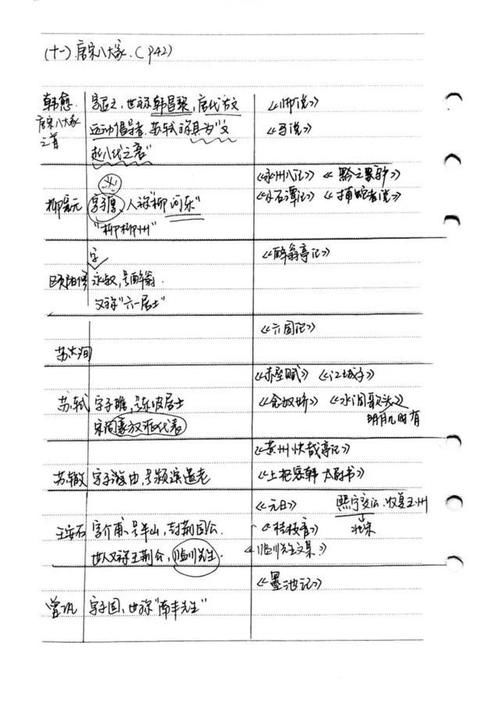 (十一) 唐宋八大家. (P42)
韩愈 字退之, 世称韩昌黎, 唐代古文 《师说》
唐宋八大家 运动倡导者, 苏轼称其为"文 《马说》
之首 起八代之衰"
《永州八记》 《黔之驴》
柳宗元 字子厚, 人称"柳河东" 《小石潭记》 《捕蛇者说》
"柳柳州"
字 《醉翁亭记》
欧阳修 永叔, 号醉翁
又称"六一居士"
《六国论》
苏洵
《赤壁赋》 《江城子》
苏轼 字子瞻, 号东坡居士 《念奴娇》 《水调歌头》
宋词豪放派代表 明月几时有
《黄州快哉亭记》
苏辙 字子由, 号颍滨遗老 《上枢密韩太尉书》
《元日》 熙宁变法
王安石 字介甫, 号半山, 封荆国公. 《桂枝香》 北宋
世人又称王荆公, 临川先生 《临川先生文集》
《墨池记》
曾巩 字子固, 世称"南丰先生"